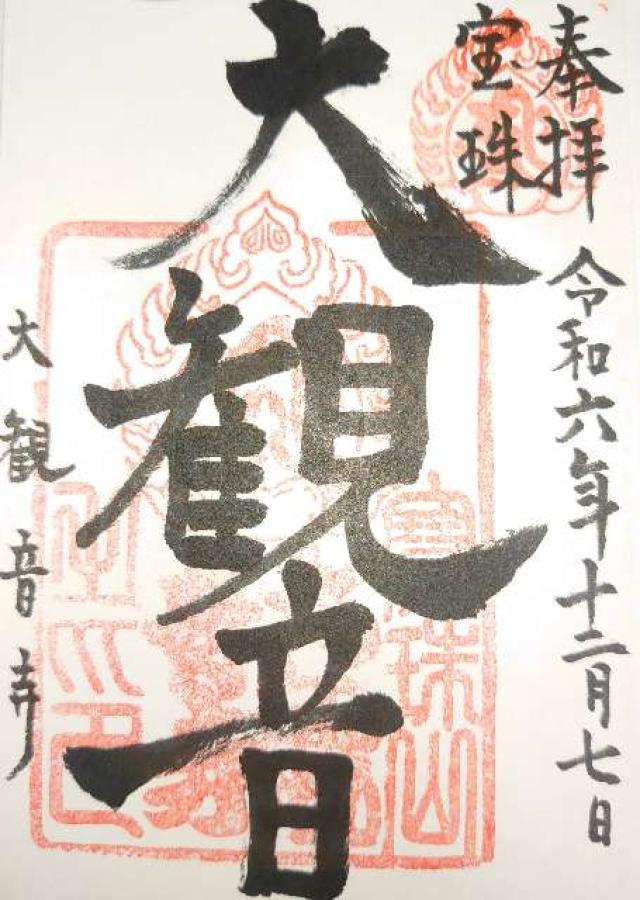 奉拝
宝珠
令和六年十二月七日
大観音
大観音寺